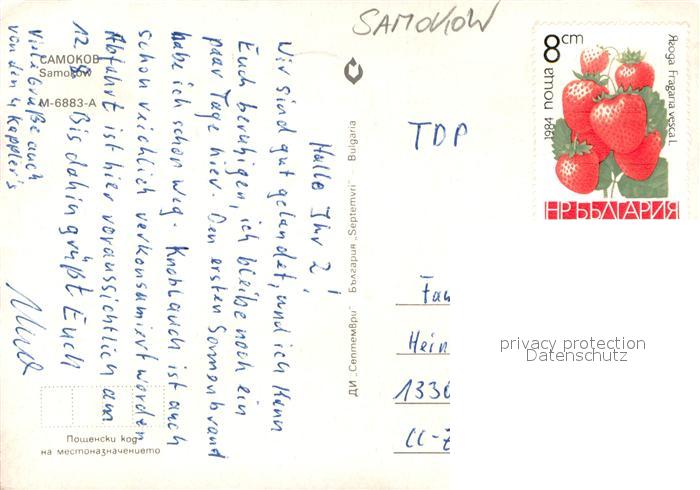 SAMOKOW
САМОКОВ
Samokow
М-6883-А
Hallo Ihr 2!
Wir sind gut gelandet, und ich kann
Euch beruhigen, ich bleibe noch ein
paar Tage hier. Den ersten Sonnenbrand
habe ich schon weg. Knoblauch ist auch
schon reichlich verkonsumiert worden
Abfahrt ist hier voraussichtlich am
12. 9. Bis dahin grüßt Euch
Viele Grüße auch
von den 4 Kappler's
ДИ „Септември" · България „Septemvri" · Bulgaria
Пощенски код
на местоназначението
TDP
Fam
Hein
1330
CC-Z
8 cm
поща
1984
Ягода Fragaria vesca L.
НР БЪЛГАРИЯ
privacy protection
Datenschutz